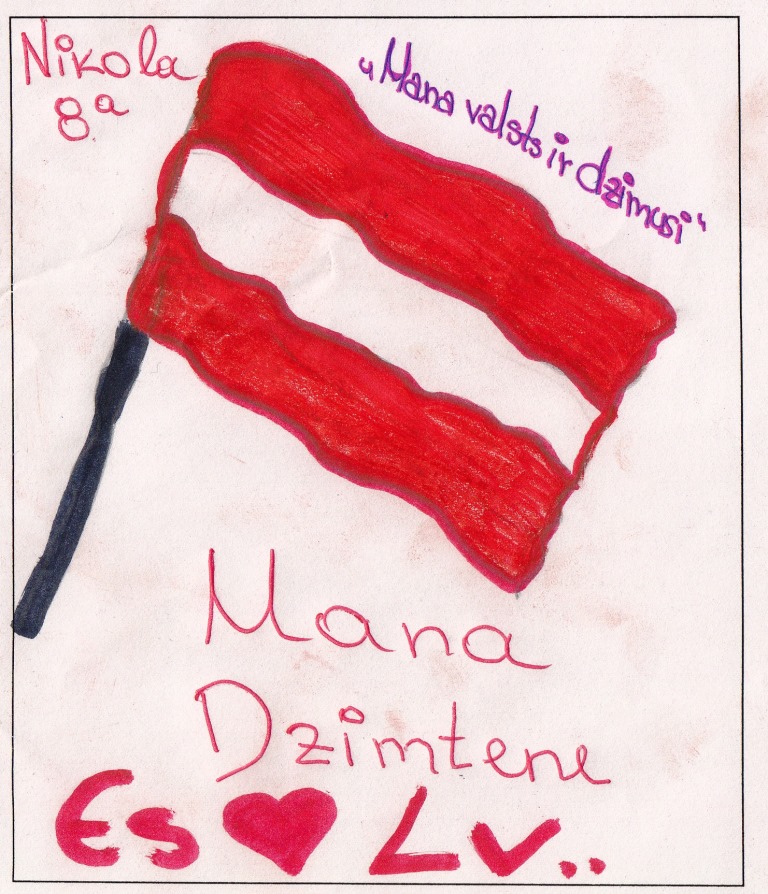 Nikola
8.a
„Mana valsts ir dzimusi“
Mana
Dzimtene
Es ♥ Lv..